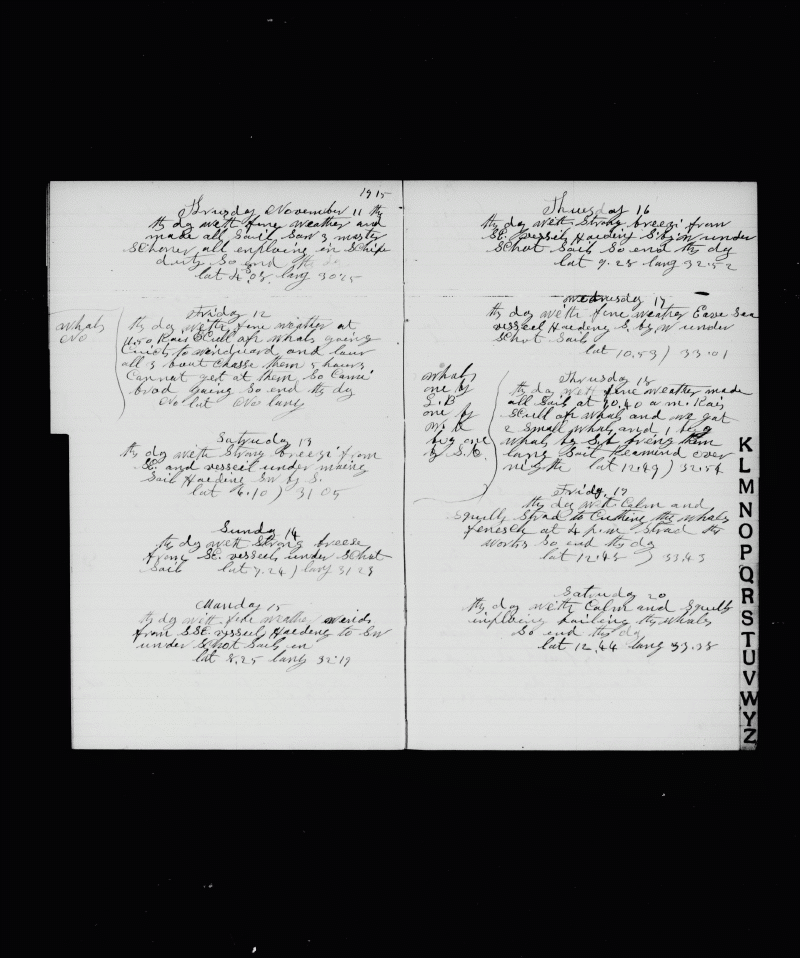 1915
Thrusday November 11 th
th day weth fine weather and
made all Sail Saw 3 master
SChoner all enploing in Schipe
duty So end th da
lat 4°.08 lang 30.25
Friday 12
whals
No
th day with fine weather at
11.50 Rais SCull of whals going
Quick to windguard and lour
all 3 boat Chasse them 5 hours
Cannot get at them So Came
brod going So end th day
No lat No lang
Satruday 13
th day with Strong breeze from
SE. and vesseil under
Sail Haeding SW by S.
lat 6.10) 31 05
Sunday 14
th day weth Strong breese
from SE. vesseils under SChot
Sail lat 7.24) lang 31 29
Manday 15
th day with fine weather winds
from SSE vesseil Haeding to SW
under Schot Sails in
lat 8.25 lang 32.19
Thuesday 16
th day with Strong breeze from
SE. vesseil Haeding S.by.W under
SChot Sail So end th day
lat 9.28 lang 32.52
wednusday 17
th day with fine weather Eave Sea
vesseil Haeding S. by W under
Schot Sails
lat 10.59) 33.01
whals
one by
S.B
one by
W.B
big one
by S.B.
Thrusday 18
th day with fine weather made
all Sail at 10.40 a m. Rais
SCull of whals and we gat
2 Small whals and 1 big
whals by S,b bring them
lang Sail Reamind over
nighte lat 12.49) 32.54
Friday. 19
th day with Calm and
Squally Strad to Cutting th whals
fenesch at 4 p.m Strad th
works So end th day
lat 12.48 ) 33.43
Satruday 20
th day with Calm and Squlls
inploing boiling th whals
So end th da
lat 12.44 lang 33.38
K
L
M
N
O
P
Q
R
S
T
U
V
W
Y
Z